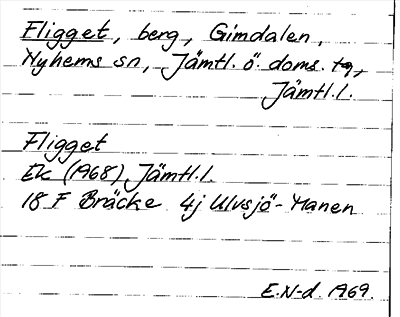 Fligget, berg, Gimdalen,
Nyhems sn, Jämtl. ö. doms. tg,
Jämtl.l.
Fligget
Ek (1968) Jämtl.l.
18 F Bräcke 4j Ulvsjö-Manen
E.N-d. 1969.